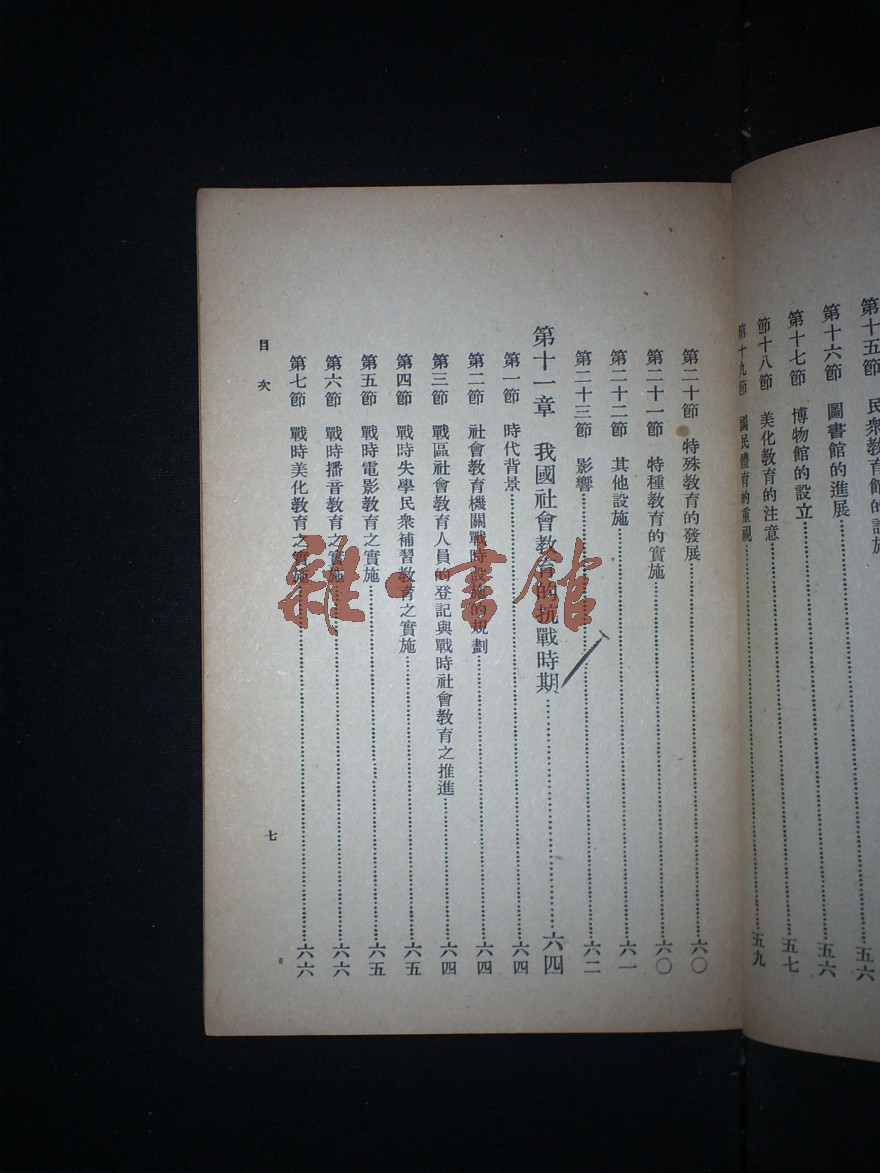 第十五節 民衆教育館的設施……五六
第十六節 圖書館的進展……五六
第十七節 博物館的設立……五七
節十八節 美化教育的注意
第十九節 國民體育的重視……五九
第二十節 特殊教育的發展……六〇
第二十一節 特種教育的實施……六〇
第二十二節 其他設施……六一
第二十三節 影響……六二
第十一章 我國社會教育的抗戰時期……六四
第一節 時代背景……六四
第二節 社會教育機關戰時設施的規劃……六四
第三節 戰區社會教育人員的登記與戰時社會教育之推進……六四
第四節 戰時失學民衆補習教育之實施……六五
第五節 戰時電影教育之實施……六五
第六節 戰時播音教育之實施……六六
第七節 戰時美化教育之實施……六六
目次
七
雜·書館